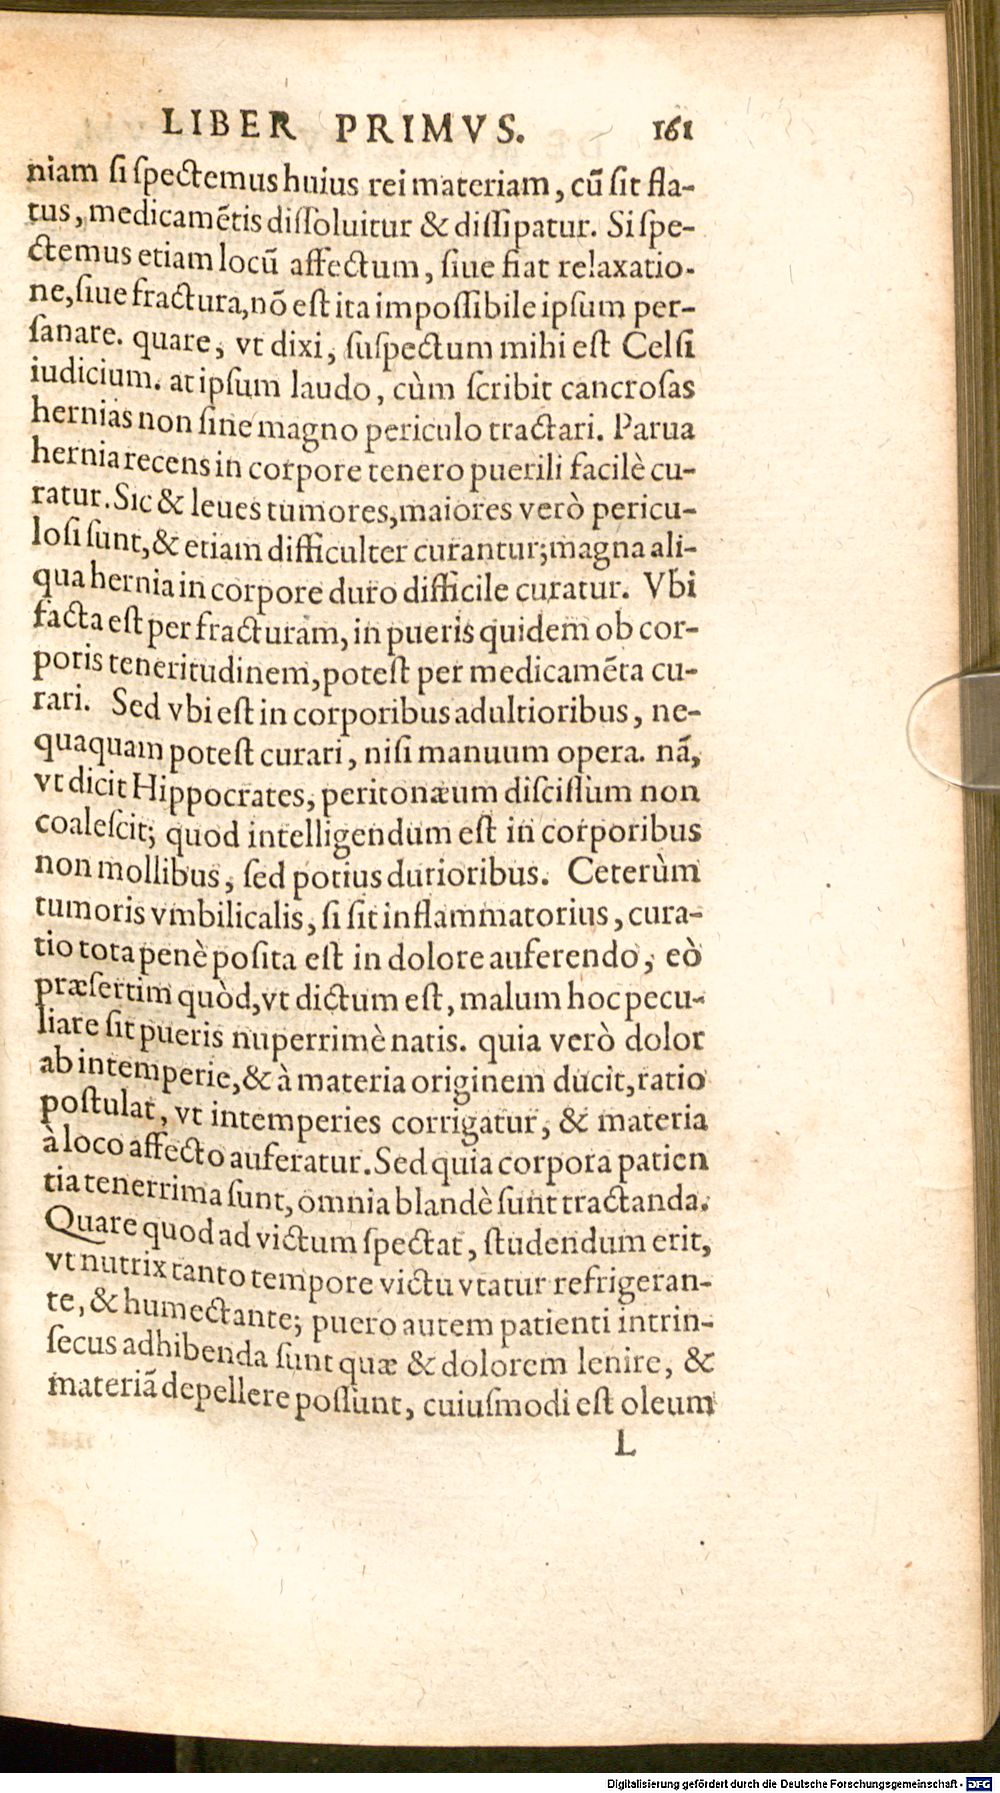 LIBER PRIMVS. 161
niam si spectemus huius rei materiam, cũ sit fla-
tus, medicamẽtis dissoluitur & dissipatur. Si spe-
ctemus etiam locũ affectum, siue fiat relaxatio-
ne, siue fractura, nõ est ita impossibile ipsum per-
sanare. quare, vt dixi, suspectum mihi est Celsi
iudicium. at ipsum laudo, cùm scribit cancrosas
hernias non sine magno periculo tractari. Parua
hernia recens in corpore tenero puerili facilè cu-
ratur. Sic & leues tumores, maiores verò pericu-
losi sunt, & etiam difficulter curantur; magna ali-
qua hernia in corpore duro difficile curatur. Vbi
facta est per fracturam, in pueris quidem ob cor-
poris teneritudinem, potest per medicamẽta cu-
rari. Sed vbi est in corporibus adultioribus, ne-
quaquam potest curari, nisi manuum opera. nã,
vt dicit Hippocrates, peritonæum discissum non
coalescit; quod intelligendum est in corporibus
non mollibus, sed potius durioribus. Ceterùm
tumoris vmbilicalis, si sit inflammatorius, cura-
tio tota penè posita est in dolore auferendo, eò
præsertim quòd, vt dictum est, malum hoc pecu-
liare sit pueris nuperrimè natis. quia verò dolor
ab intemperie, & à materia originem ducit, ratio
postulat, vt intemperies corrigatur, & materia
à loco affecto auferatur. Sed quia corpora patien
tia tenerrima sunt, omnia blandè sunt tractanda.
Quare quod ad victum spectat, studendum erit,
vt nutrix tanto tempore victu vtatur refrigeran-
te, & humectante; puero autem patienti intrin-
secus adhibenda sunt quæ & dolorem lenire, &
materiã depellere possunt, cuiusmodi est oleum
L
Digitalisierung gefördert durch die Deutsche Forschungsgemeinschaft - DFG